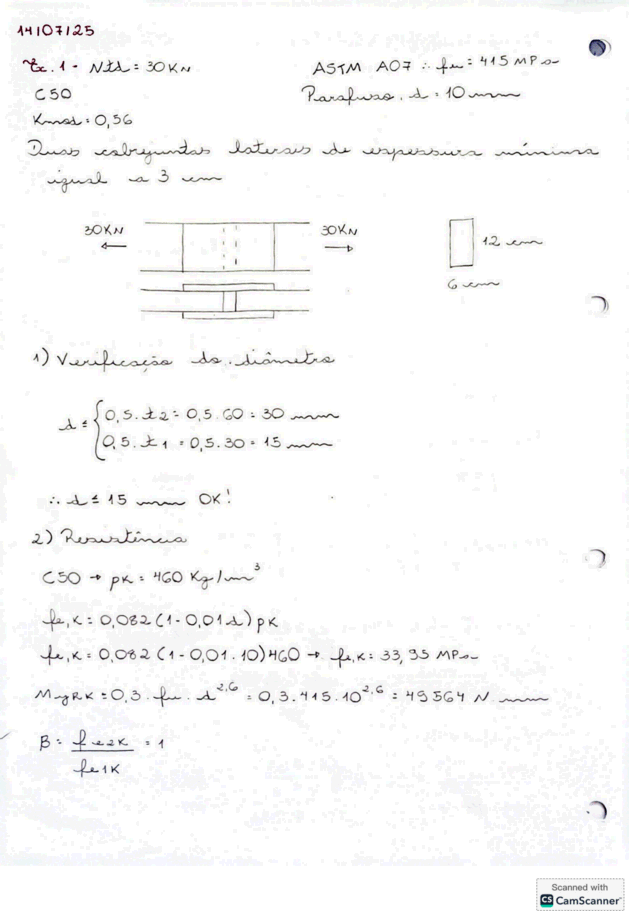 14/07/25
Ex. 1 - Ntd = 30 KN
ASTM A07 ∴ fu = 415 MPa
C50
Parafuso. d = 10 mm
Kmod = 0,56
Duas cobrejuntas laterais de espessura mínima
igual a 3 cm
30KN
30KN
12 cm
6 cm
1) Verificação do diâmetro
d ≤ { 0,5. t2 = 0,5. 60 = 30 mm
0,5. t1 = 0,5. 30 = 15 mm
∴ d ≤ 15 mm OK!
2) Resistência
C50 → ρK = 460 Kg/m³
fe,K = 0,082 (1 - 0,01d) ρK
fe,K = 0,082 (1 - 0,01. 10) 460 → fe,K = 33,95 MPa
MyRK = 0,3. fu. d^2,6 = 0,3. 415. 10^2,6 = 49564 N mm
β = fe2K / fe1K = 1
Scanned with
CS CamScanner